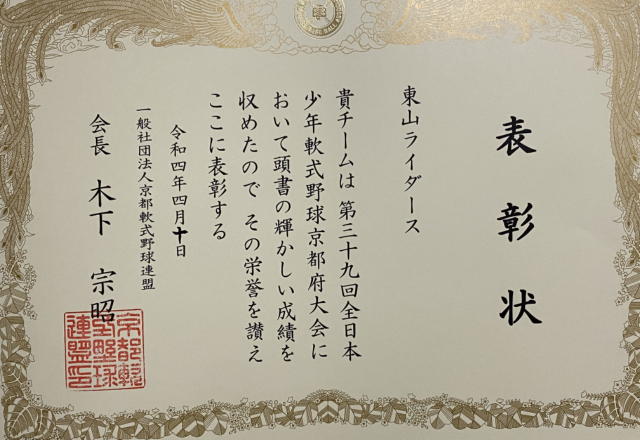 表彰状
東山ライダース
貴チームは 第三十九回全日本
少年軟式野球京都府大会に
おいて頭書の輝かしい成績を
収めたので その栄誉を讃え
ここに表彰する
令和四年四月十日
一般社団法人京都軟式野球連盟
会長 木下 宗昭
京都軟
式野球
連盟印